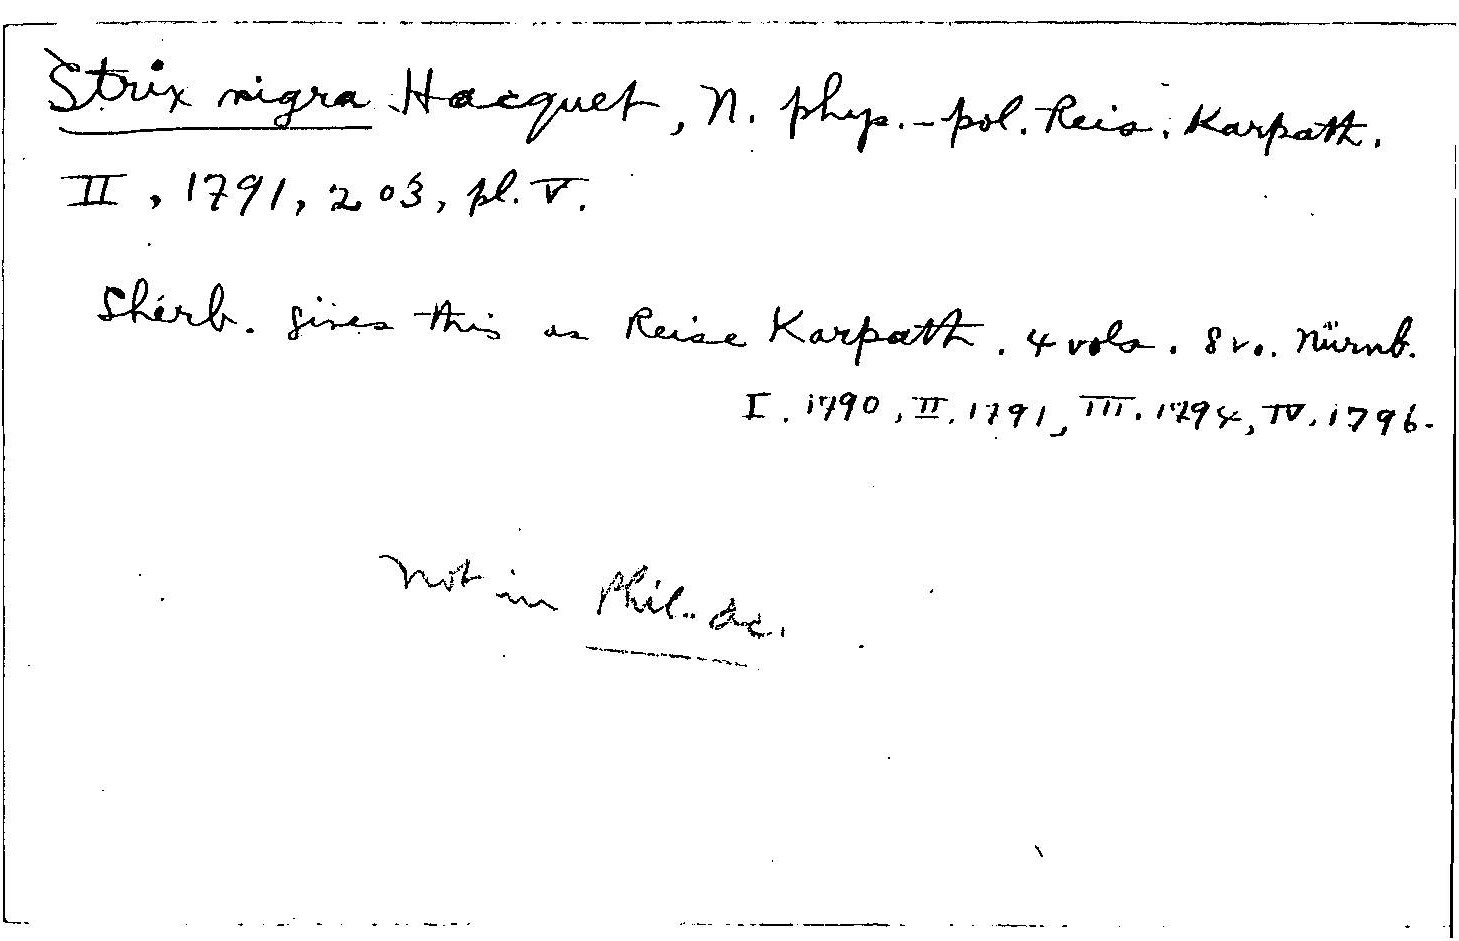 Strix nigra Hacquet, N. phys.-pol. Reis. Karpath.
II, 1791, 203, pl. V.
Sherb. gives this as Reise Karpath. 4 vols. 8vo. Nürnb.
I. 1790, II. 1791, III. 1794, IV. 1796.
Not in Phil. Ac.